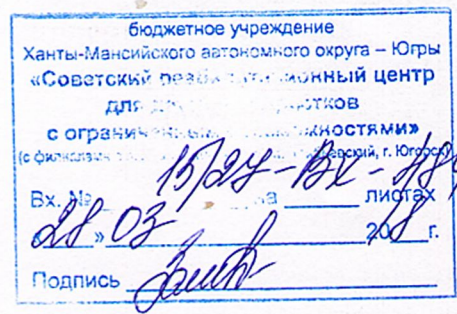 бюджетное учреждение
Ханты-Мансийского автономного округа – Югры
«Советский реабилитационный центр
для
с ограниченными возможностями»
(с филиалами г. Югорск)
Вх. № 15/27-Вх-484 на листах
«28» 03 2018 г.
Подпись